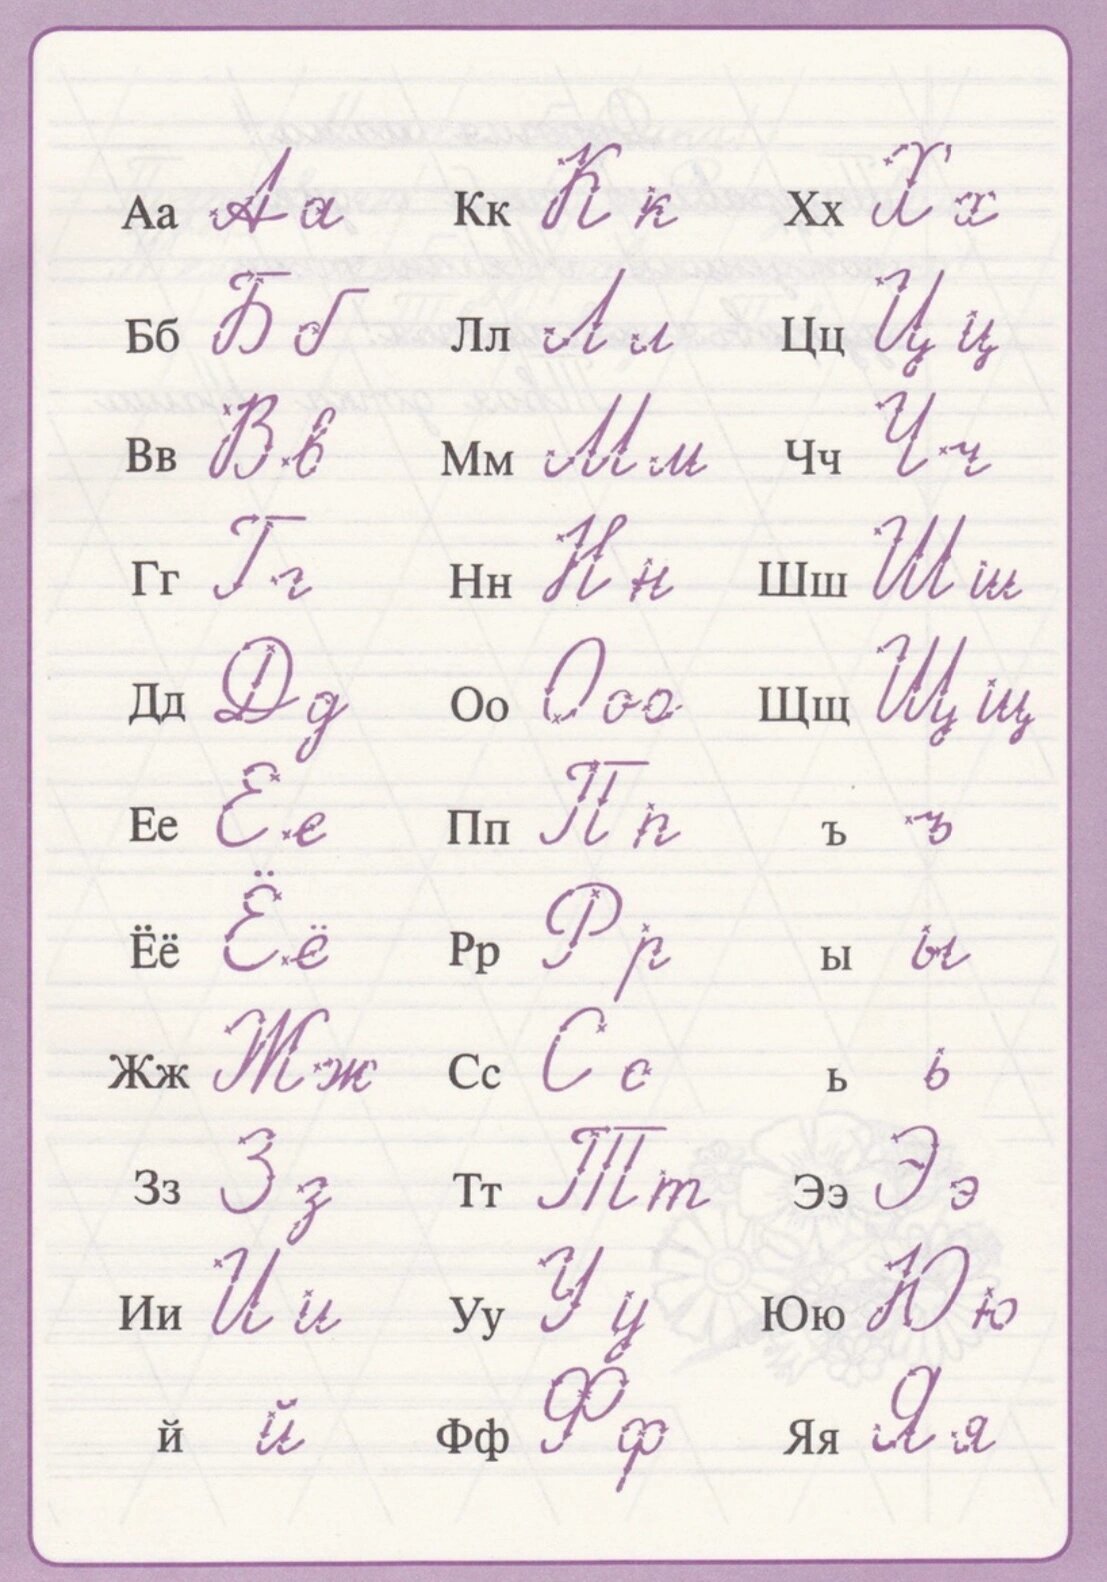 Аа Аа Кк Кк Хх Хх
Бб Бб Лл Лл Цц Цц
Вв Вв Мм Мм Чч Чч
Гг Гг Нн Нн Шш Шш
Дд Дд Оо Ооо Щщ Щщ
Ее Ее Пп Пп ъ ъ
Ёё Ёё Рр Рр ы ы
Жж Жж Сс Сс ь ь
Зз Зз Тт Тт Ээ Ээ
Ии Ии Уу Уу Юю Юю
й й Фф Фф Яя Яя